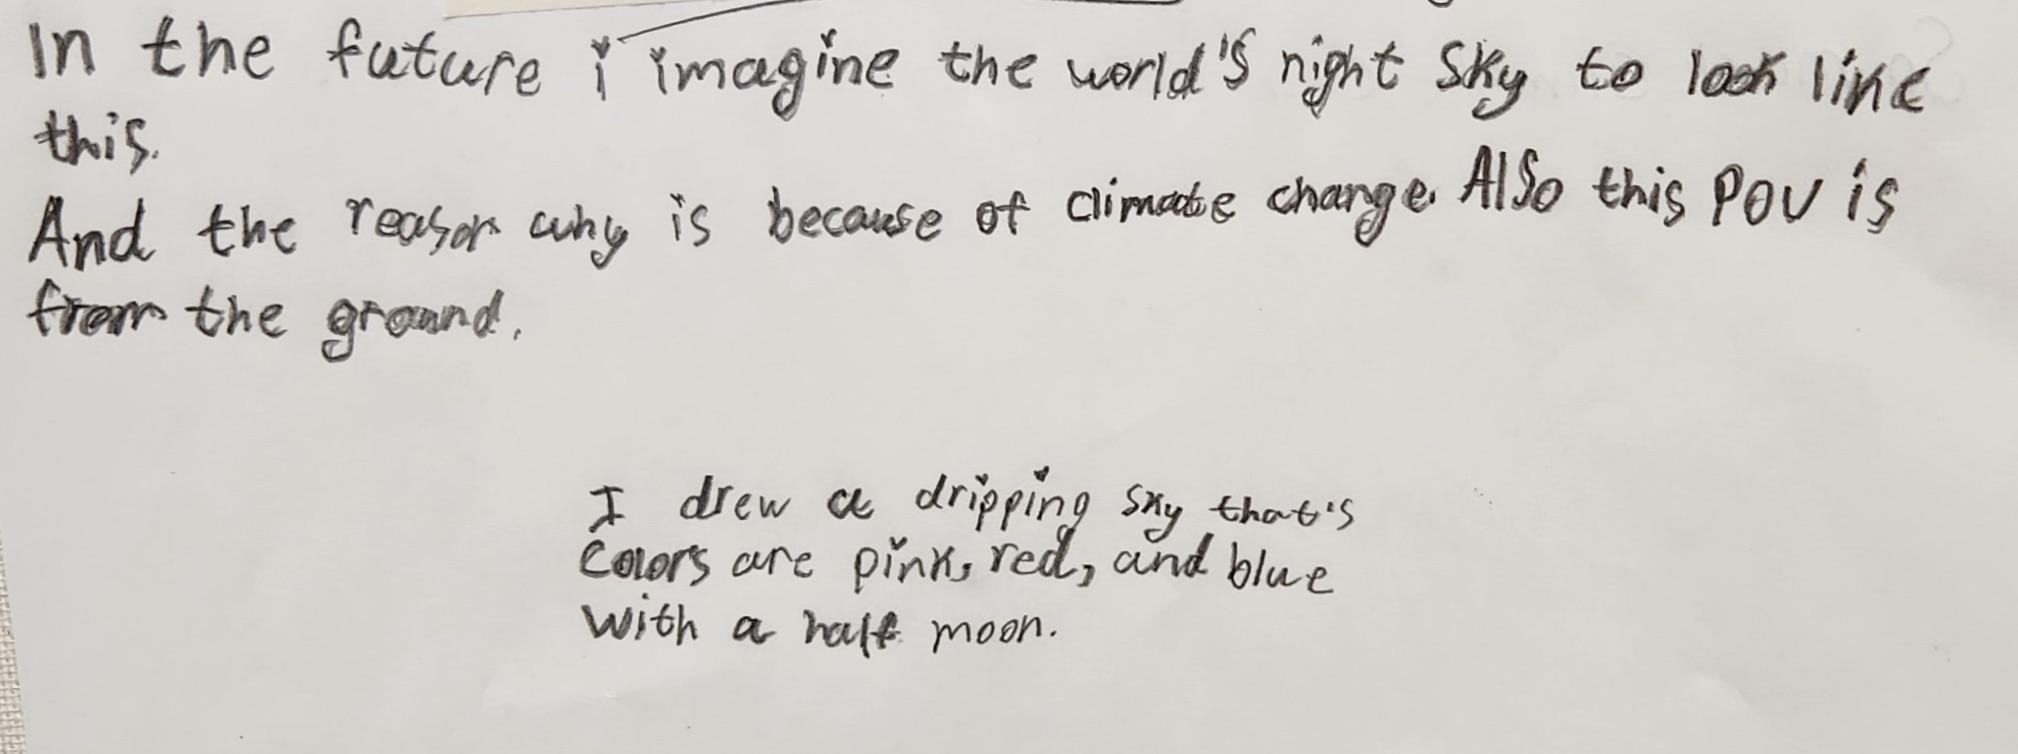 In the future i imagine the world's night sky to look like
this.
And the reason why is because of climate change. Also this POV is
from the ground.
I drew a dripping sky that's
Colors are pink, red, and blue
with a half moon.